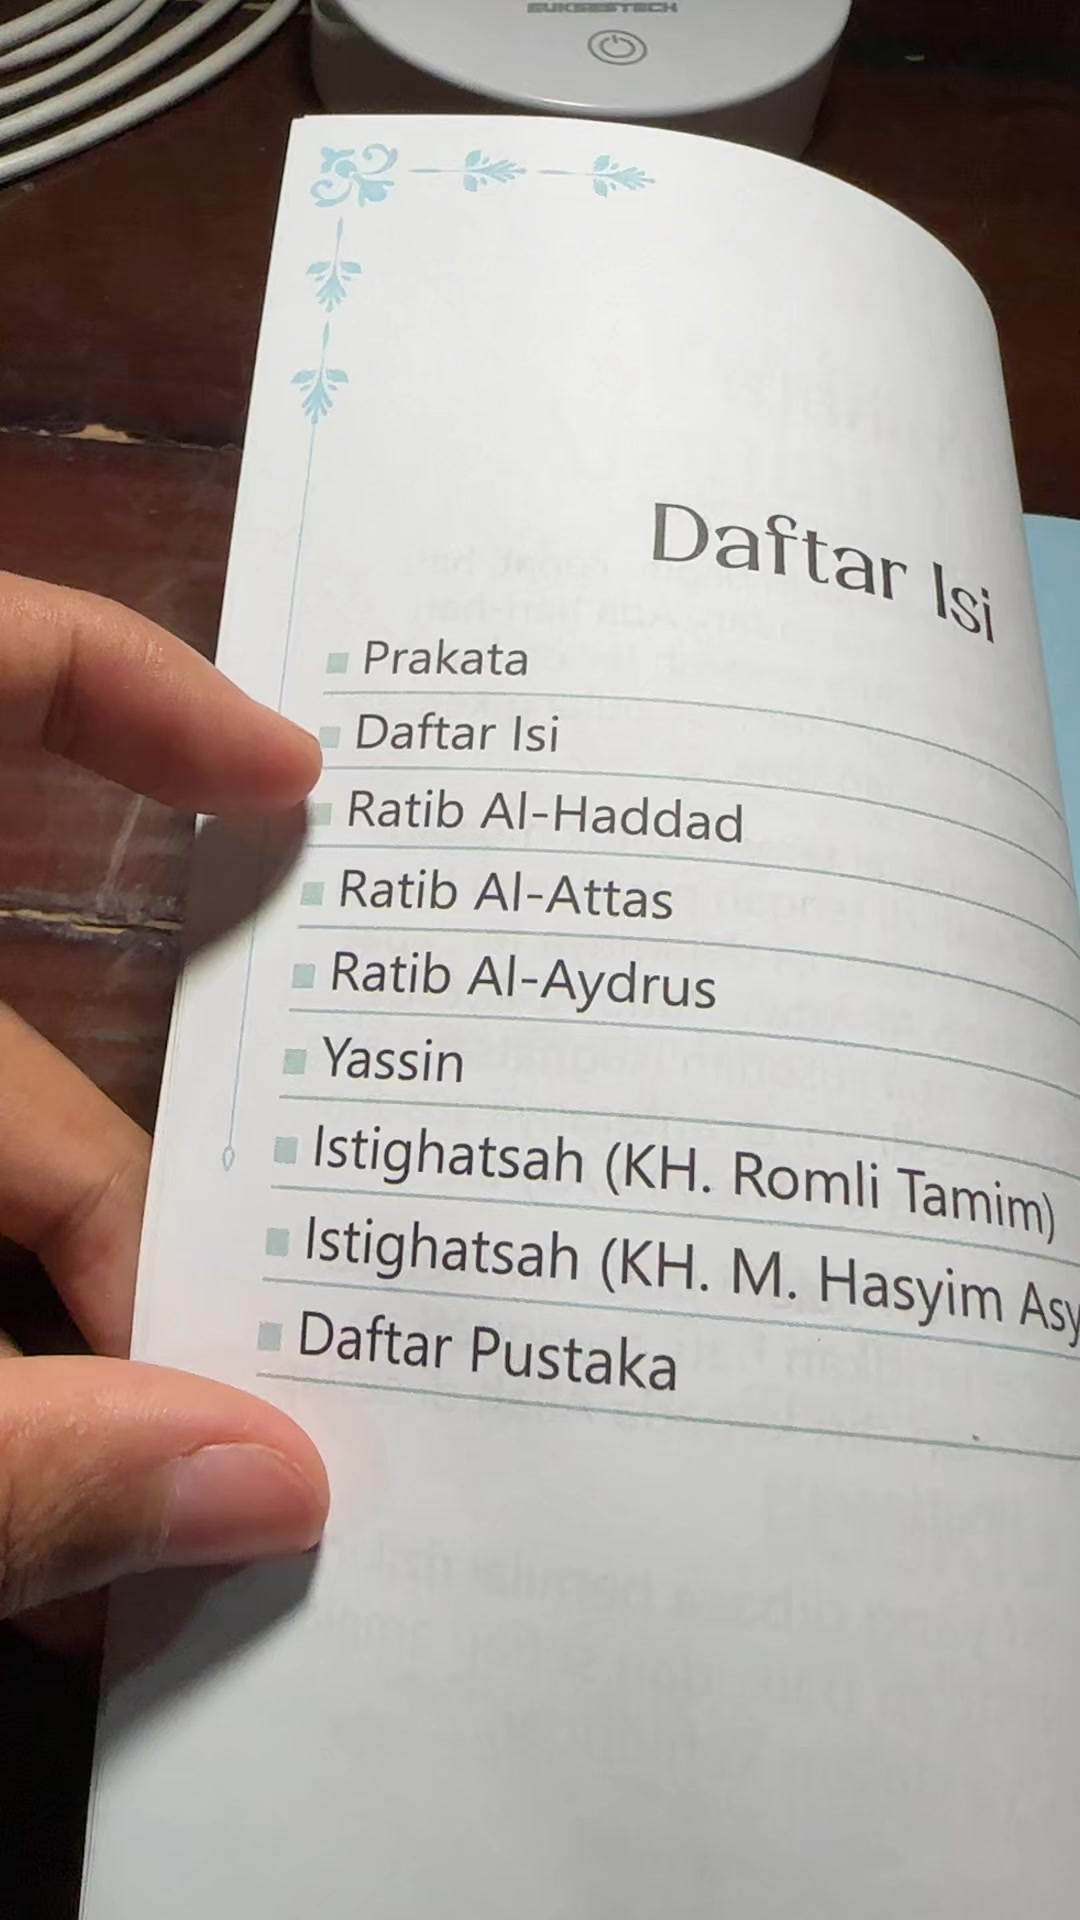 SUKSESTECH
Daftar Isi
Prakata
Daftar Isi
Ratib Al-Haddad
Ratib Al-Attas
Ratib Al-Aydrus
Yassin
Istighatsah (KH. Romli Tamim)
Istighatsah (KH. M. Hasyim Asy
Daftar Pustaka